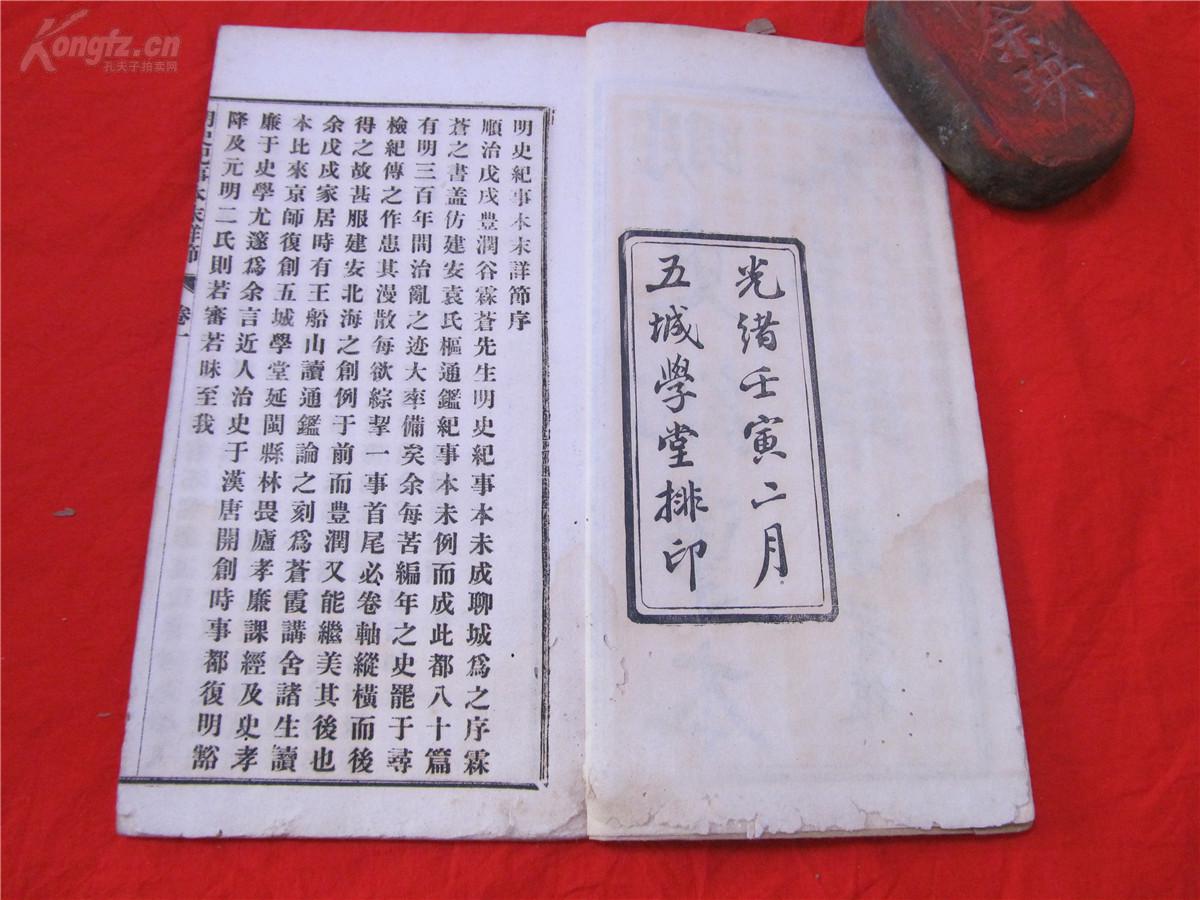 Kongfz.cn
孔夫子拍卖网
光緒壬寅二月
五城學堂排印
明史紀事本末詳節序
順治戊戌豊潤谷霖蒼先生明史紀事本末成聊城爲之序霖
蒼之書盖仿建安袁氏樞通鑑紀事本末例而成此都八十篇
有明三百年間治亂之迹大率備矣余每苦編年之史罷于尋
檢紀傳之作患其漫散每欲綜挈一事首尾必卷軸縱橫而後
得之故甚服建安北海之創例于前而豊潤又能繼美其後也
余戊戌家居時有王船山讀通鑑論之刻爲蒼霞講舍諸生讀
本比來京師復創五城學堂延閩縣林畏廬孝廉課經及史孝
廉于史學尤邃爲余言近人治史于漢唐開創時事都復明豁
降及元明二氏則若審若昧至我
明史紀事本末詳節
卷一